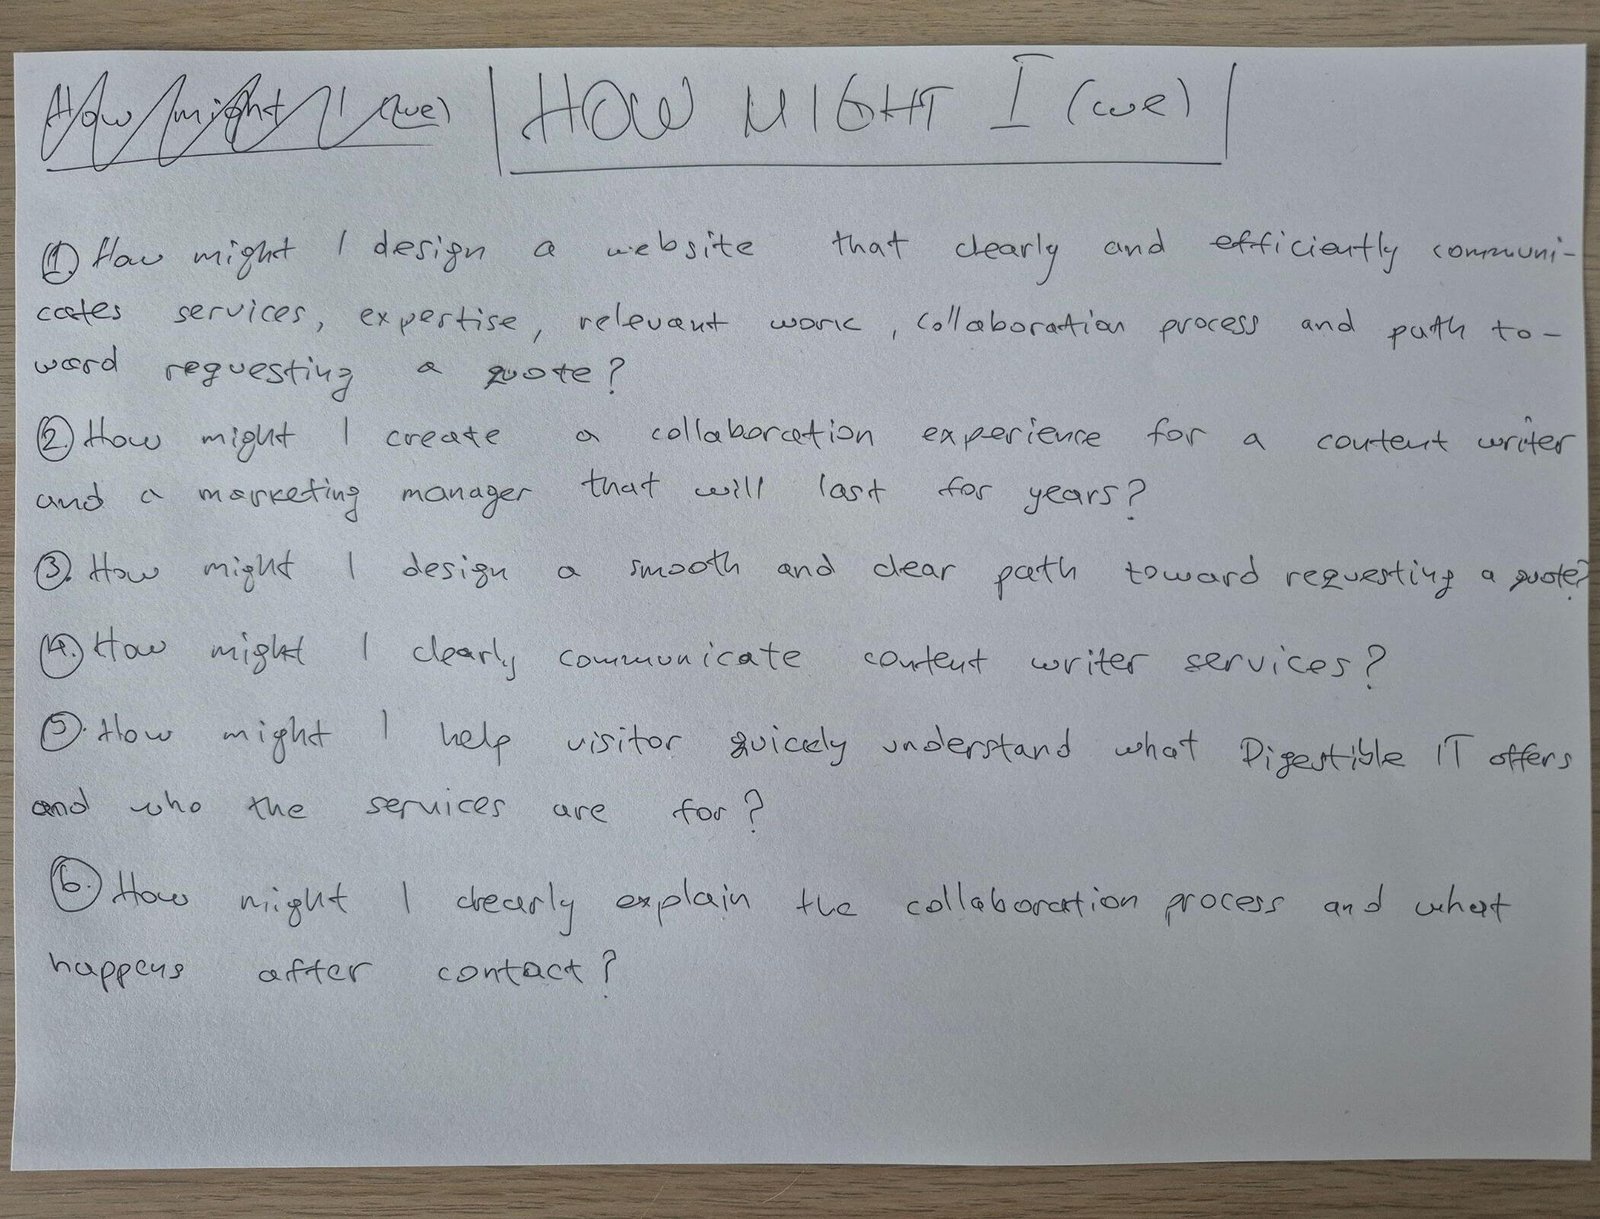 How might I (we)
HOW MIGHT I (we)
1. How might I design a website that clearly and efficiently communi-
cates services, expertise, relevant work, collaboration process and path to-
ward requesting a quote?
2. How might I create a collaboration experience for a content writer
and a marketing manager that will last for years?
3. How might I design a smooth and clear path toward requesting a quote?
4. How might I clearly communicate content writer services?
5. How might I help visitor quickly understand what Digestible IT offers
and who the services are for?
6. How might I clearly explain the collaboration process and what
happens after contact?